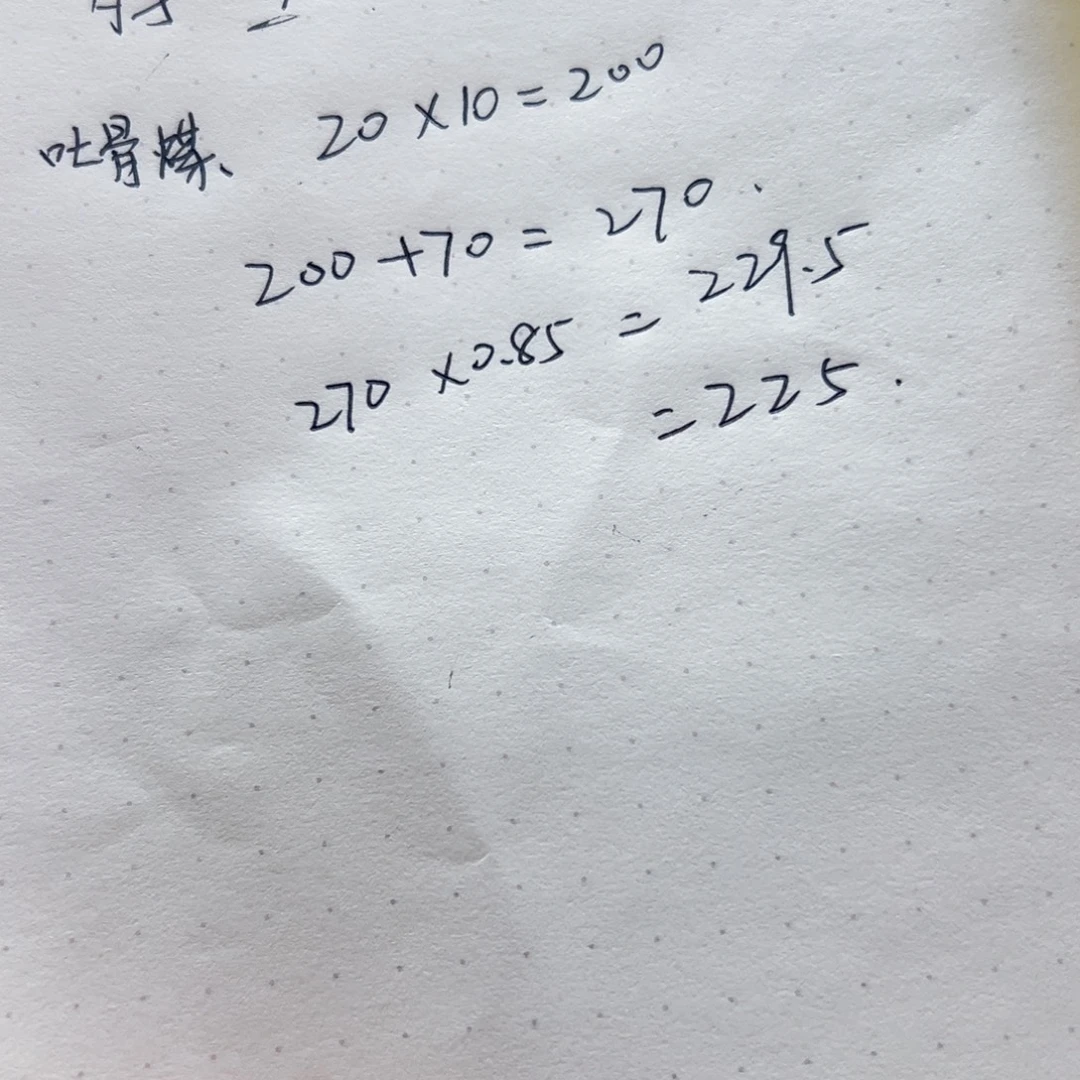 吐骨煤、 20×10=200
200+70=270.
270×0.85=229.5
=225.